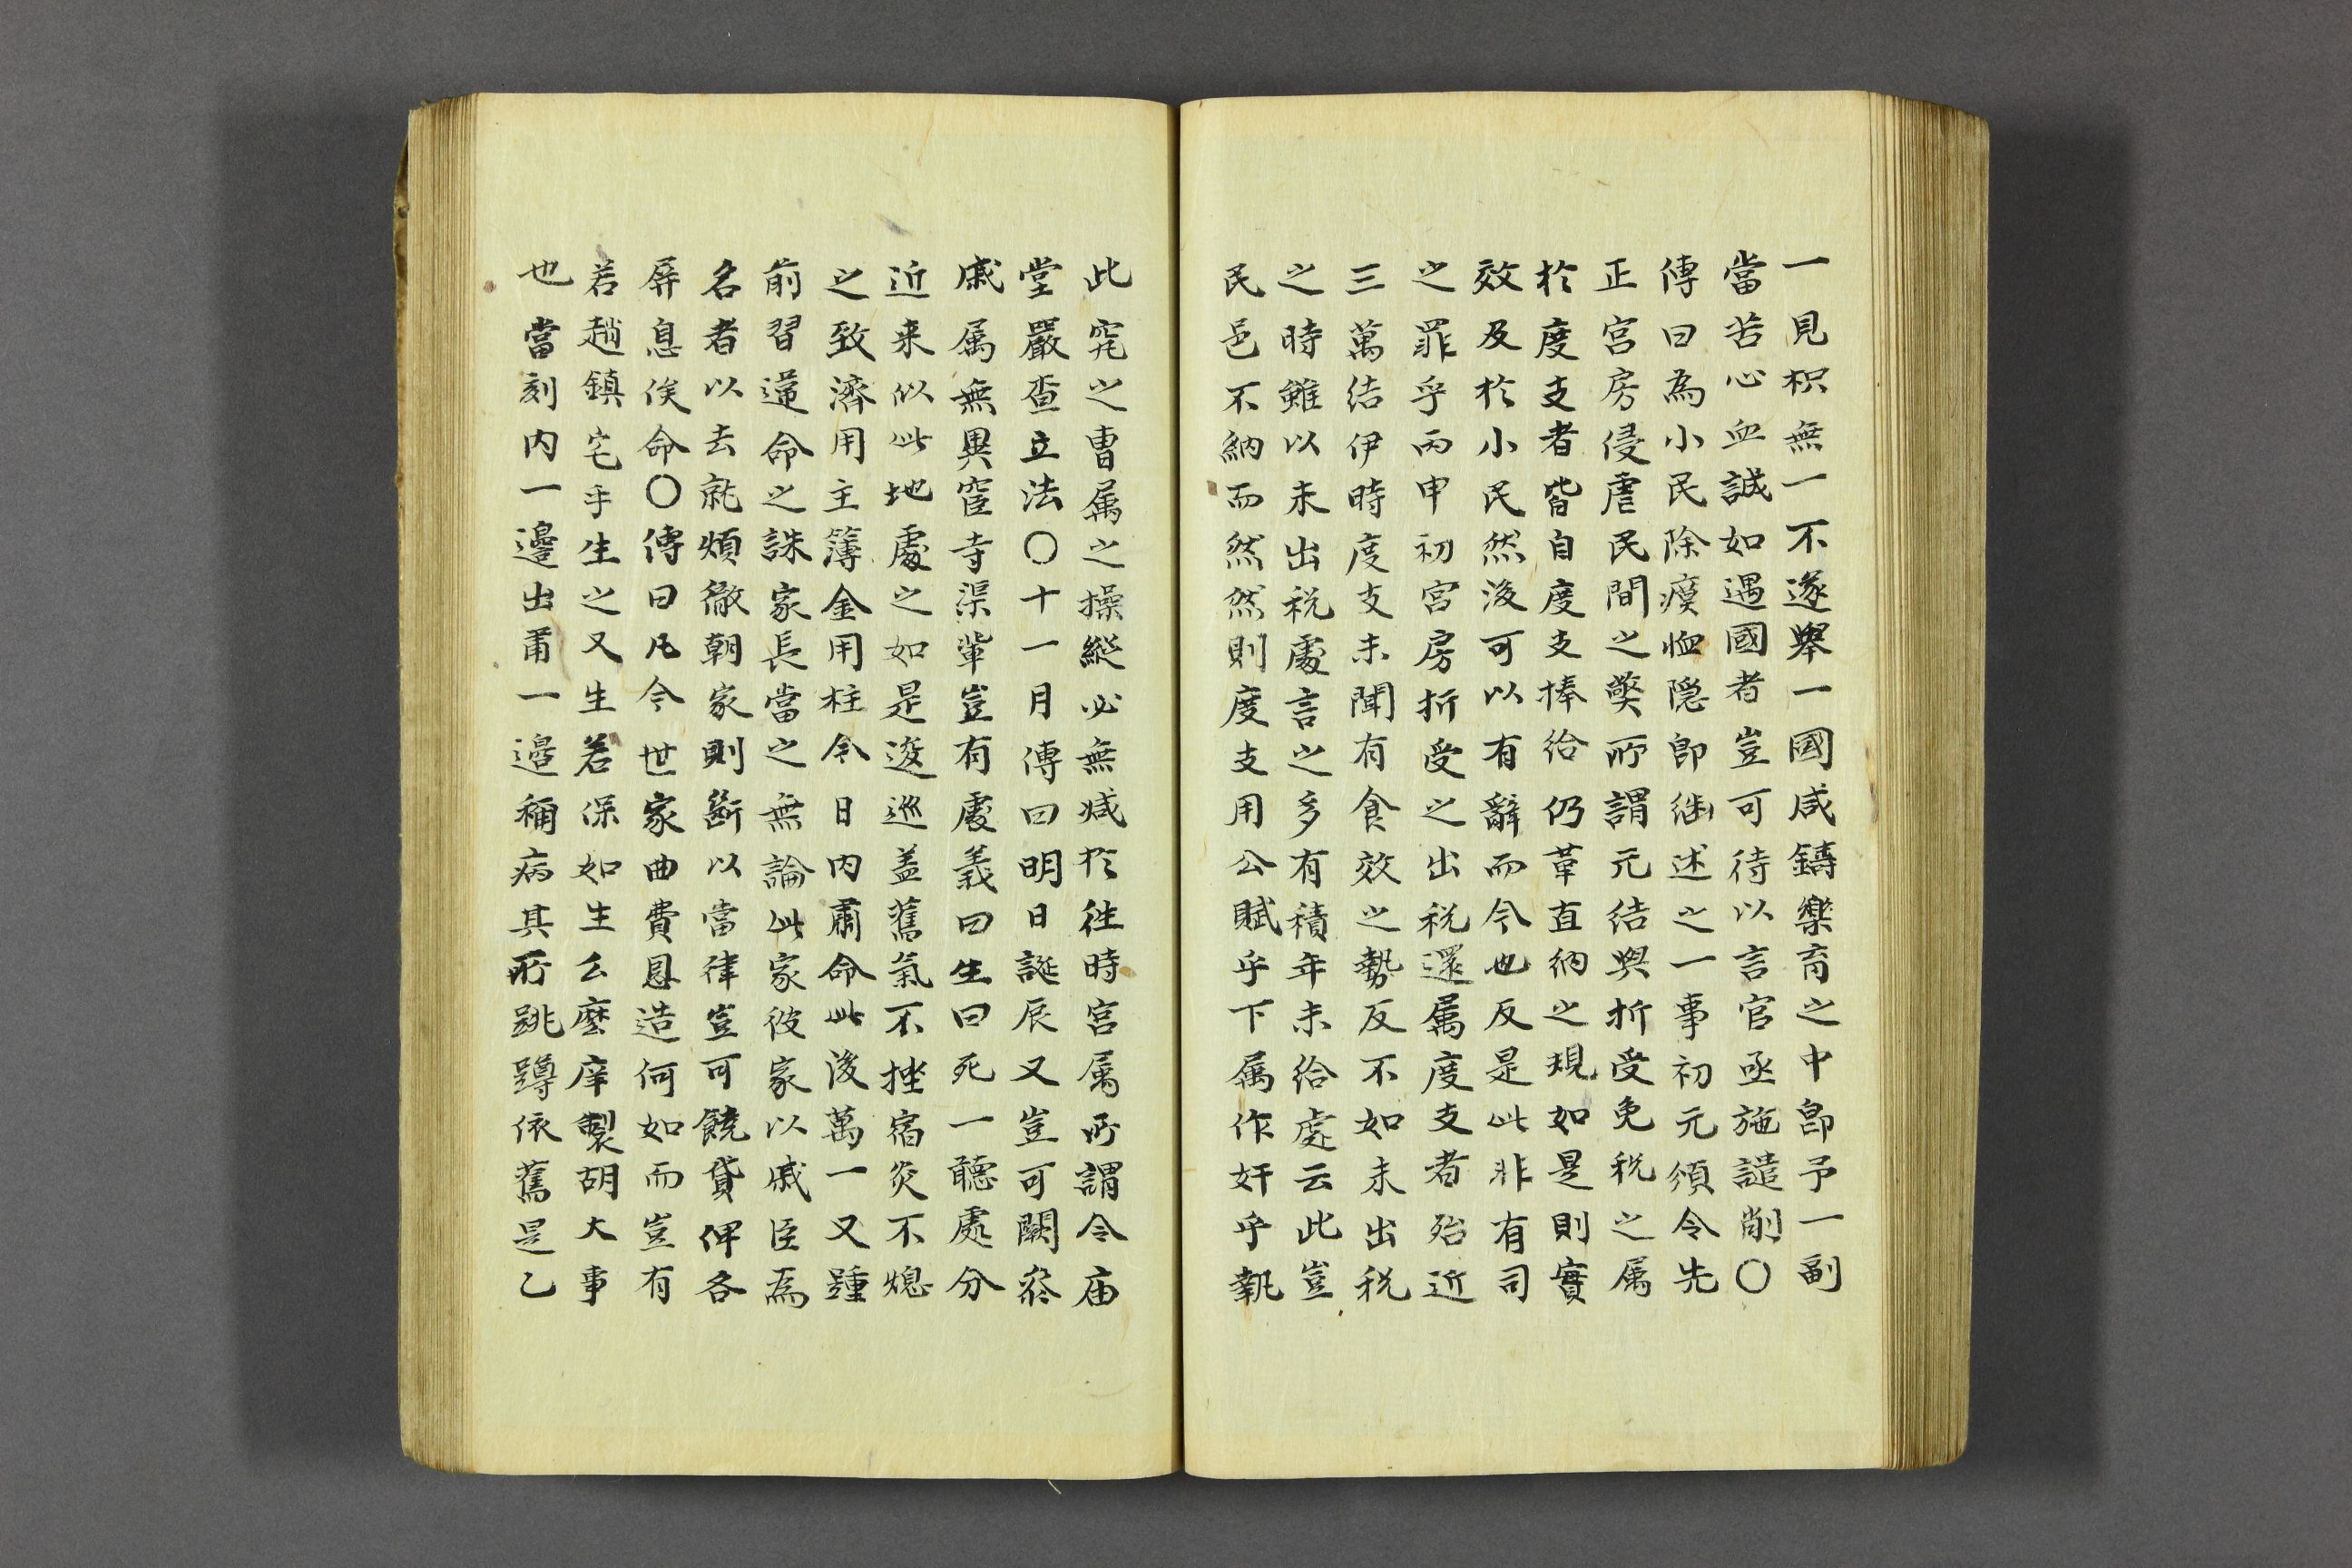 一見枳無一不遂舉一國咸鑄樂育之中卽予一副
當苦心血誠如遇國者豈可待以言官亟施譴削〇
傳曰為小民除瘼恤隱卽継述之一事初元須令先
正宮房侵虐民間之獘所謂元結與折受免税之属
於度支者皆自度支捧給仍革直納之規如是則實
效及於小民然後可以有辭而今也反是此非有司
之罪乎丙申初宮房折受之出税還属度支者殆近
三萬結伊時度支未聞有食效之勢反不如未出税
之時雖以未出税處言之多有積年未給處云此豈
民邑不納而然然則度支用公賦乎下属作奸乎執
此究之曺属之操縱必無减於徃時宮属所謂令庙
堂嚴查立法〇十一月傳曰明日誕辰又豈可闕叅
戚属無異宦寺渠輩豈有處義曰生曰死一聽處分
近来似此地處之如是逡巡盖舊氣不挫宿炎不熄
之致濟用主簿金用柱令日内肅命此後萬一又踵
前習違命之誅家長當之無論此家彼家以戚臣為
名者以去就煩徹朝家則斷以當律豈可饒貸俾各
屏息俟命〇傳曰凡今世家曲費恩造何如而豈有
若趙鎮宅乎生之又生若保如生么麽庠製胡大事
也當刻内一邊出莆一邊稱病其所跳蹲依舊是乙